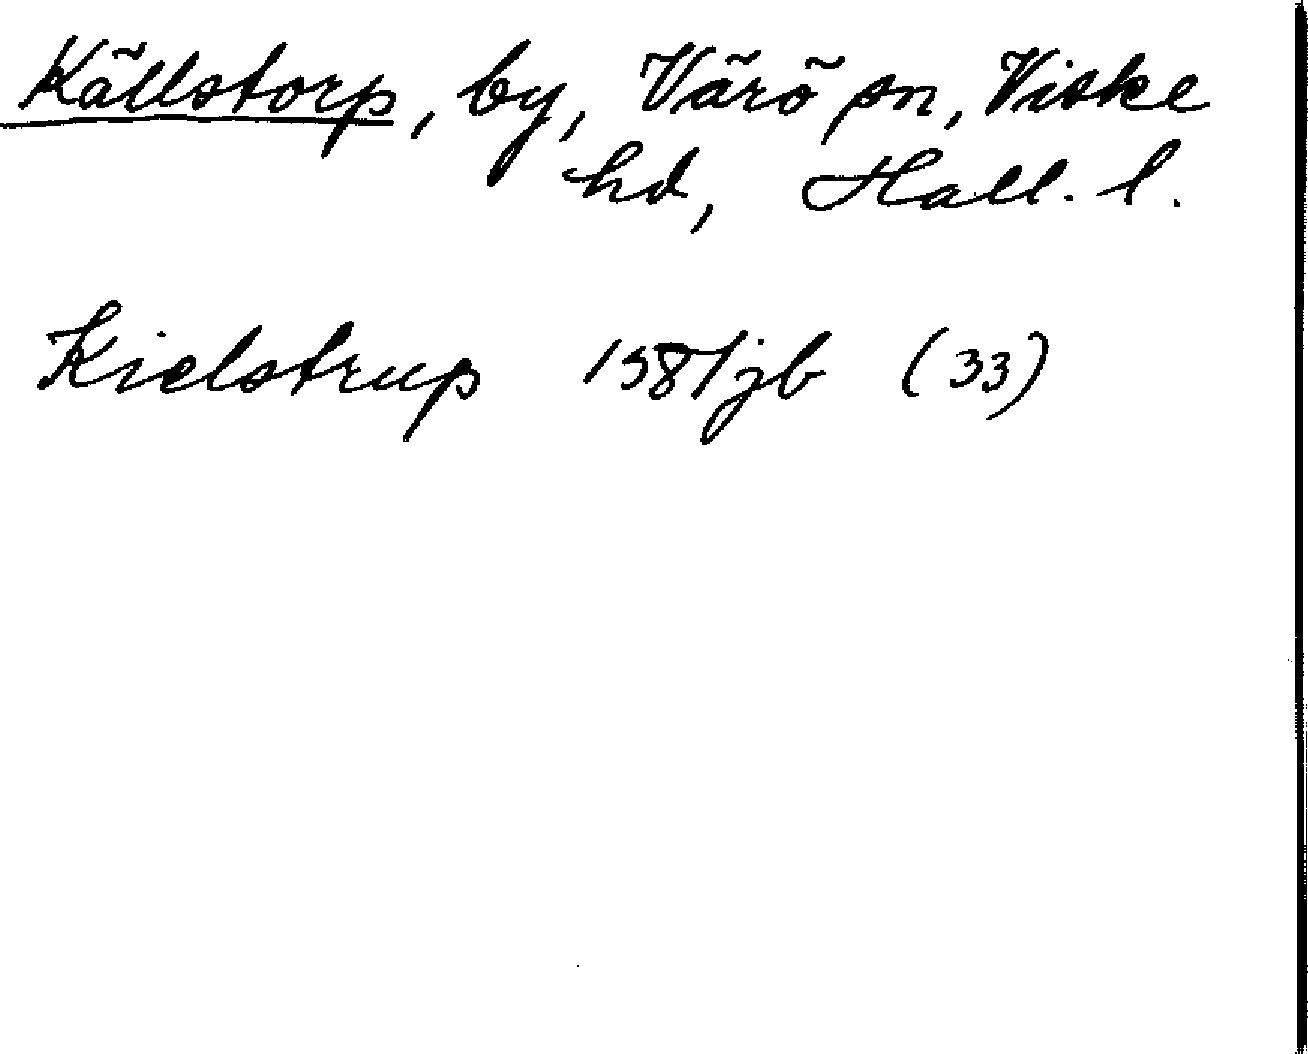 Källstorp, by, Värö sn, Viske
hd, Hall. l.
Kielstrup 1581 jb (33)